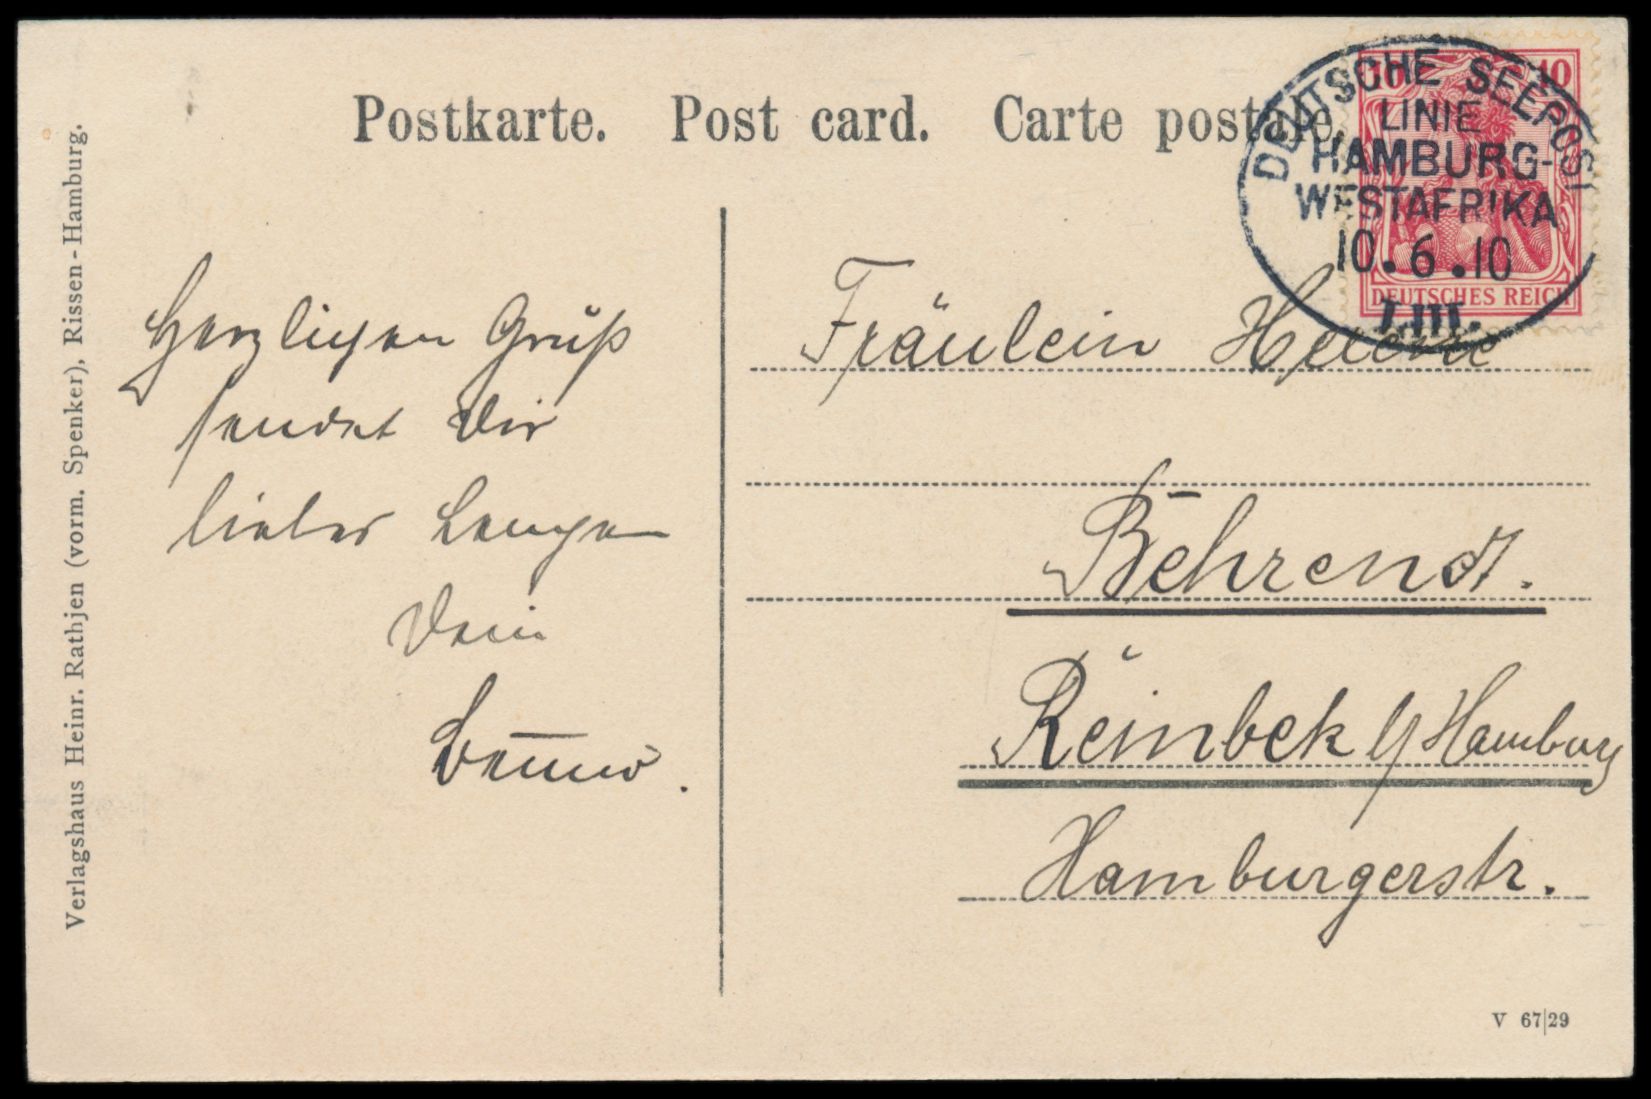 Postkarte. Post card. Carte postale.
DEUTSCHE SEEPOST
LINIE
HAMBURG-
WESTAFRIKA
10.6.10
LIII.
10 10
DEUTSCHES REICH
Verlagshaus Heinr. Rathjen (vorm. Spenker), Rissen-Hamburg.
Herzlichen Gruß
sendet Dir
lieber
Dein
Benno.
Fräulein Helene
Behrendt.
Reinbek b/Hamburg
Hamburgerstr.
V 67|29